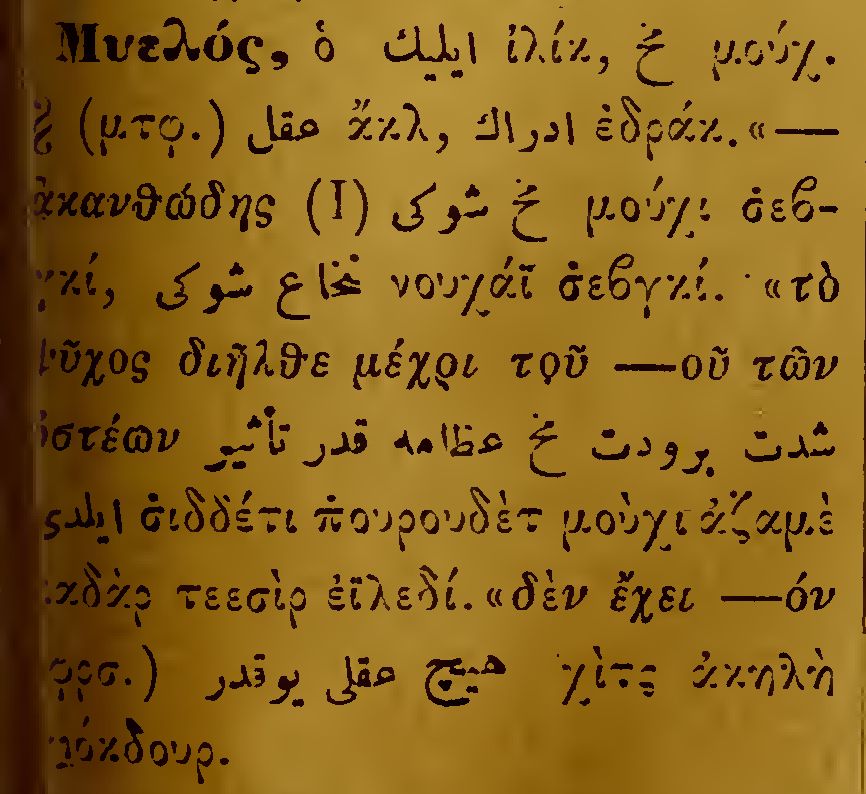 Μυελός, ὁ ایلیك ἰλίκ, مخ μούχ.
(μτφ.) عقل ἄκλ, ادراك ἐδράκ. «—
ἀκανθώδης (Ι) مخ شوكی μούχι σ̇εβ-
γκί, نخاع شوكی νουχάϊ σ̇εβγκί. «τὸ
ψῦχος διῆλθε μέχρι τοῦ —οῦ τῶν
ὀστέων شدت برودت مخ عظامه قدر تأثیر
ایلدی σ̇ιδδέτι π̇ουρουδὲτ μοὺχι ἀζαμὲ
κδὰρ τεεσὶρ ἐϊλεδί. «δὲν ἔχει —όν
(φρσ.) هیچ عقلی یوقدر χὶτς ἀκηλὴ
γιόκδουρ.